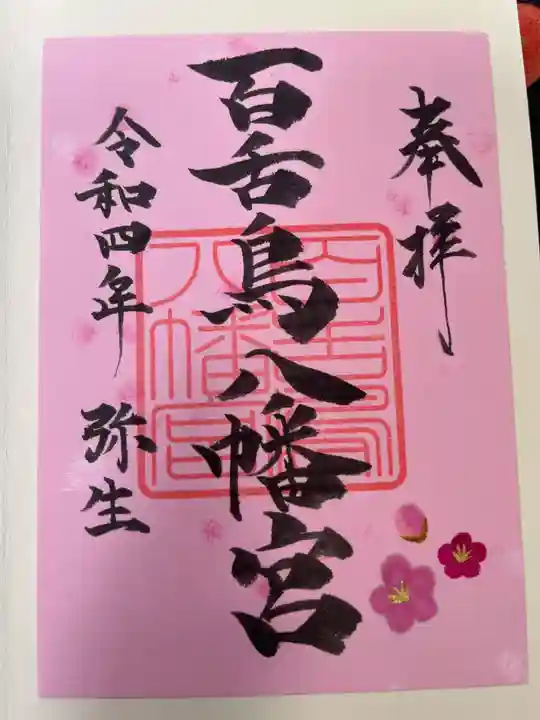 奉拝
百舌鳥八幡宮
令和四年 弥生
百舌鳥
八幡宮